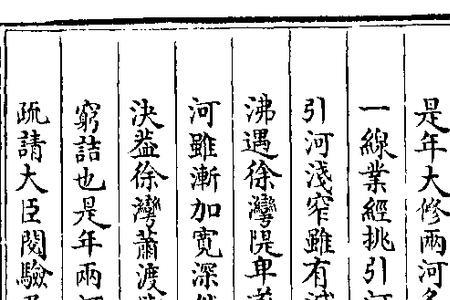 是年大修兩河
一線業經挑引河
引河淺窄雖有
沸遇徐灣隄卑
河雖漸加寬深
決葢徐灣蕭渡
窮詰也是年兩河
疏請大臣閱驗